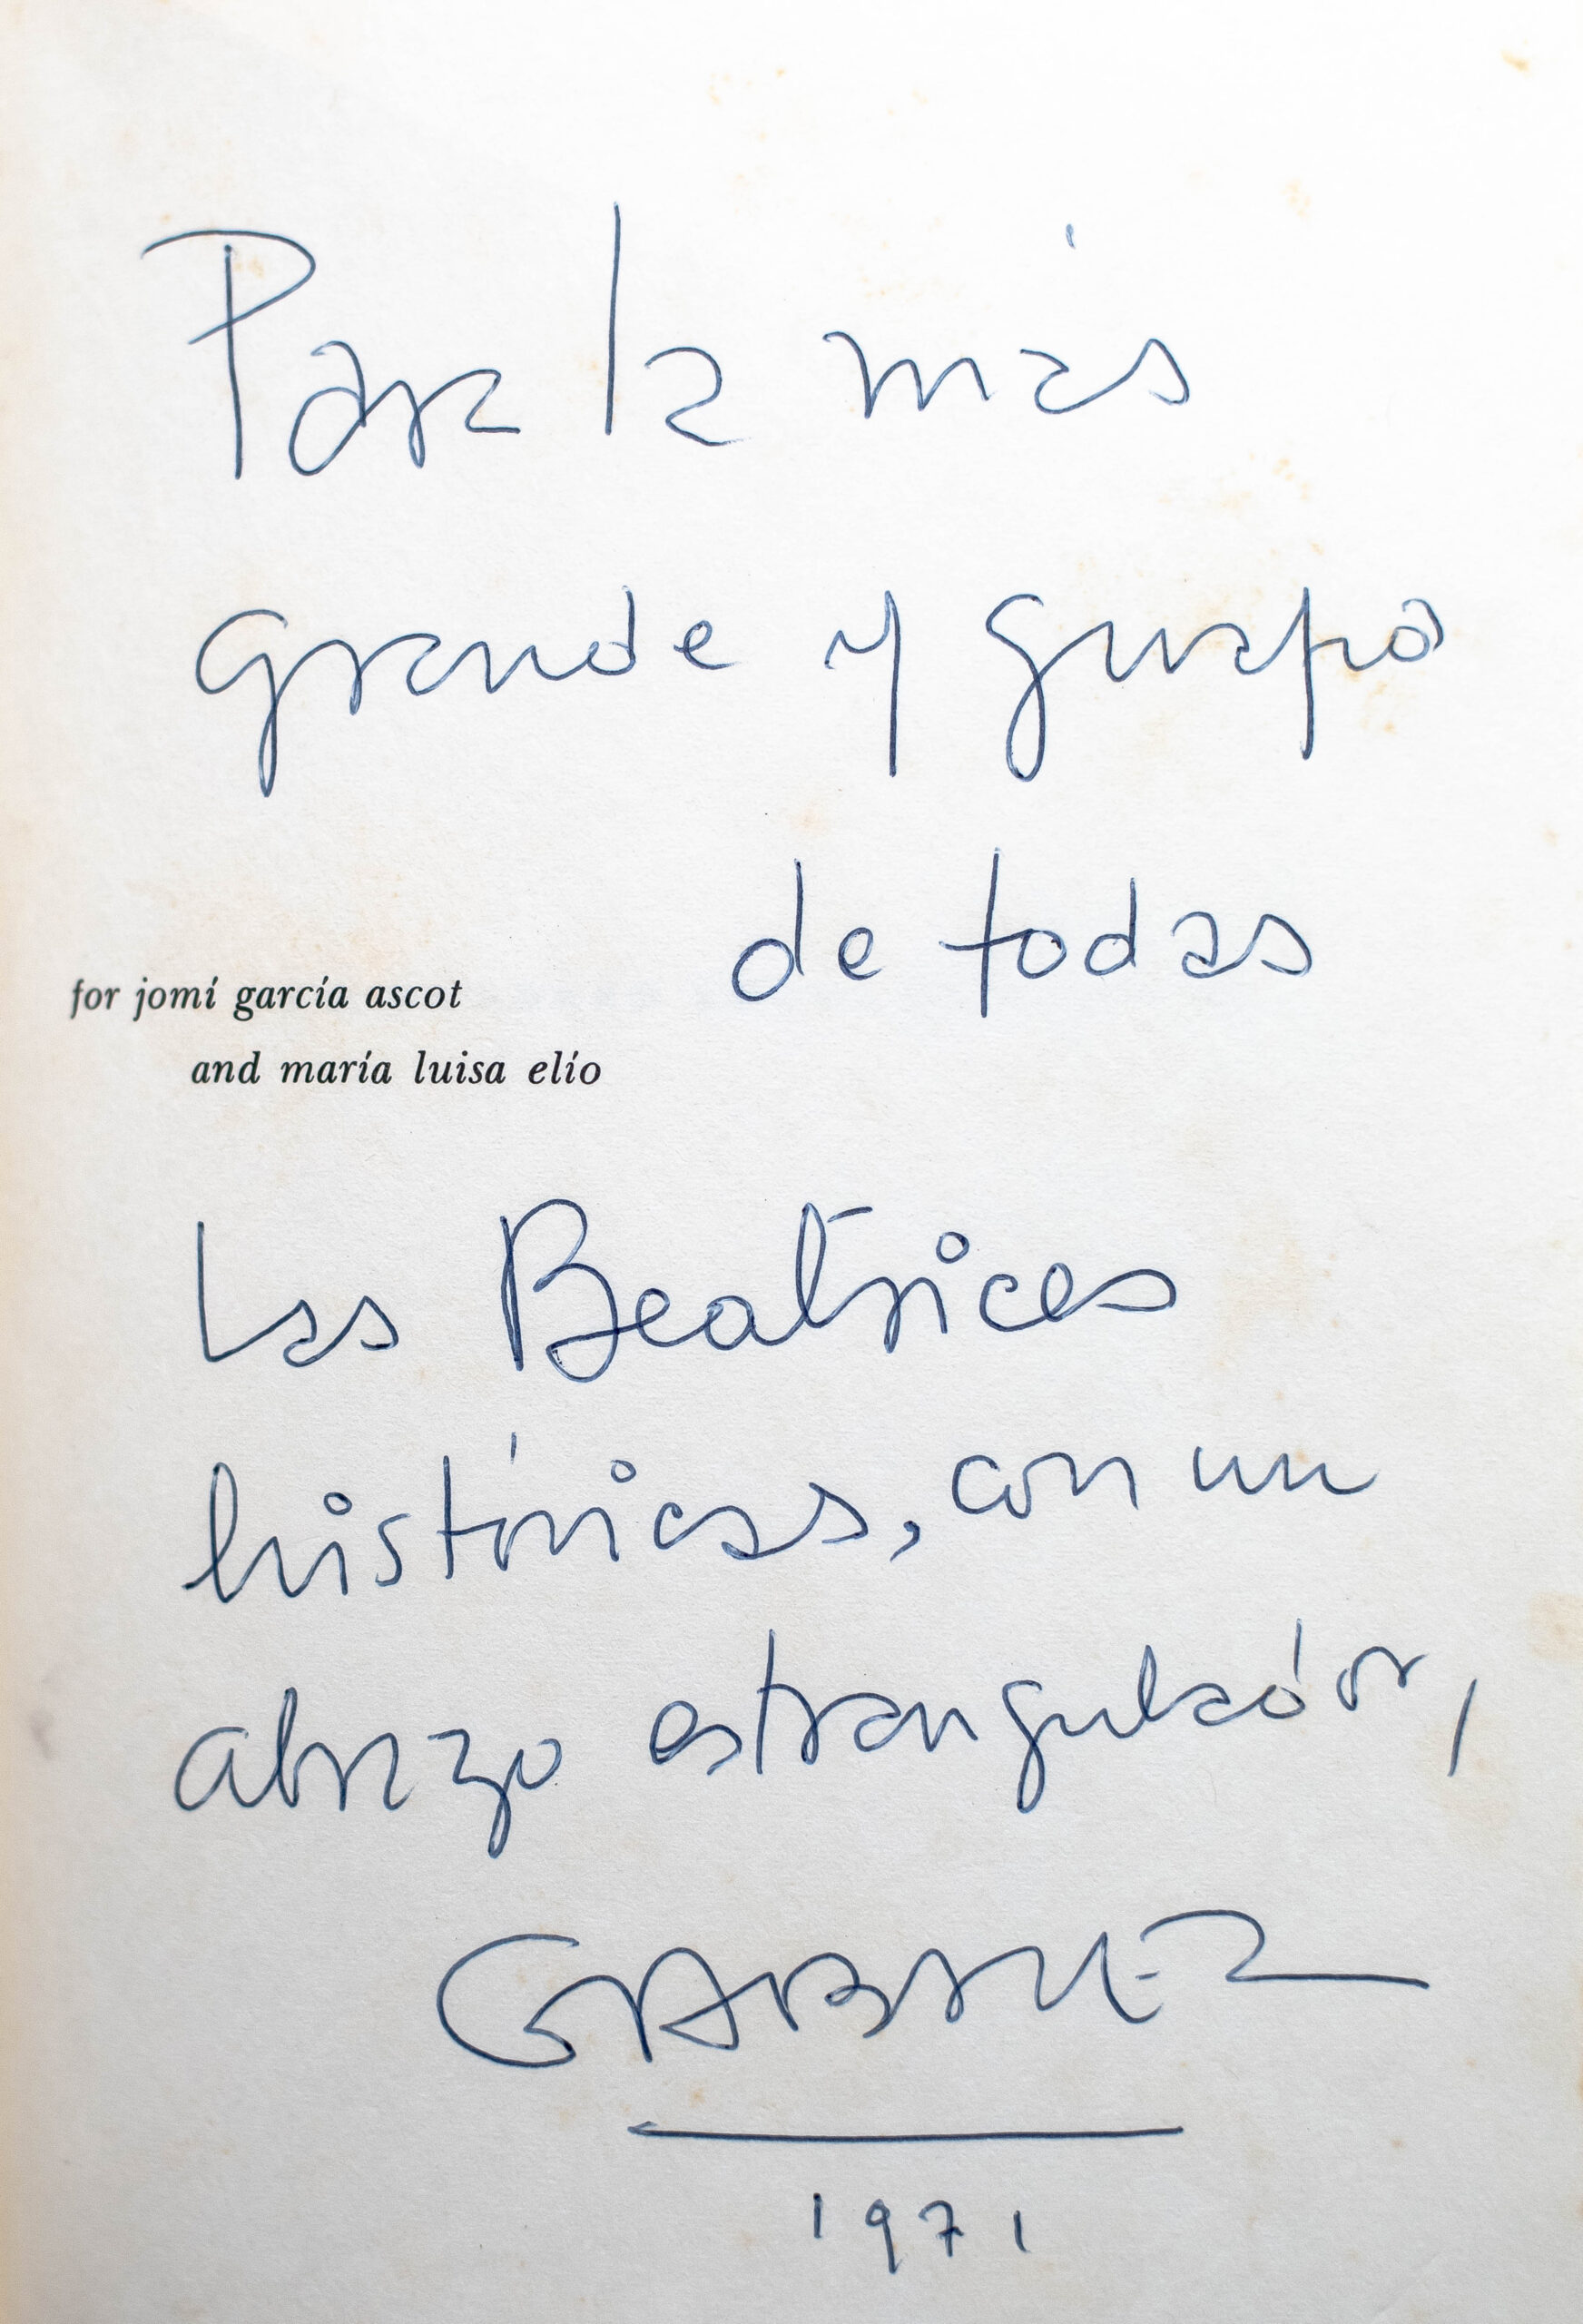 Para la más
grande y guapa
de todas
for jomí garcía ascot
and maría luisa elío
las Beatrices
históricas, con un
abrazo estrangulador,
GABRIEL
1971